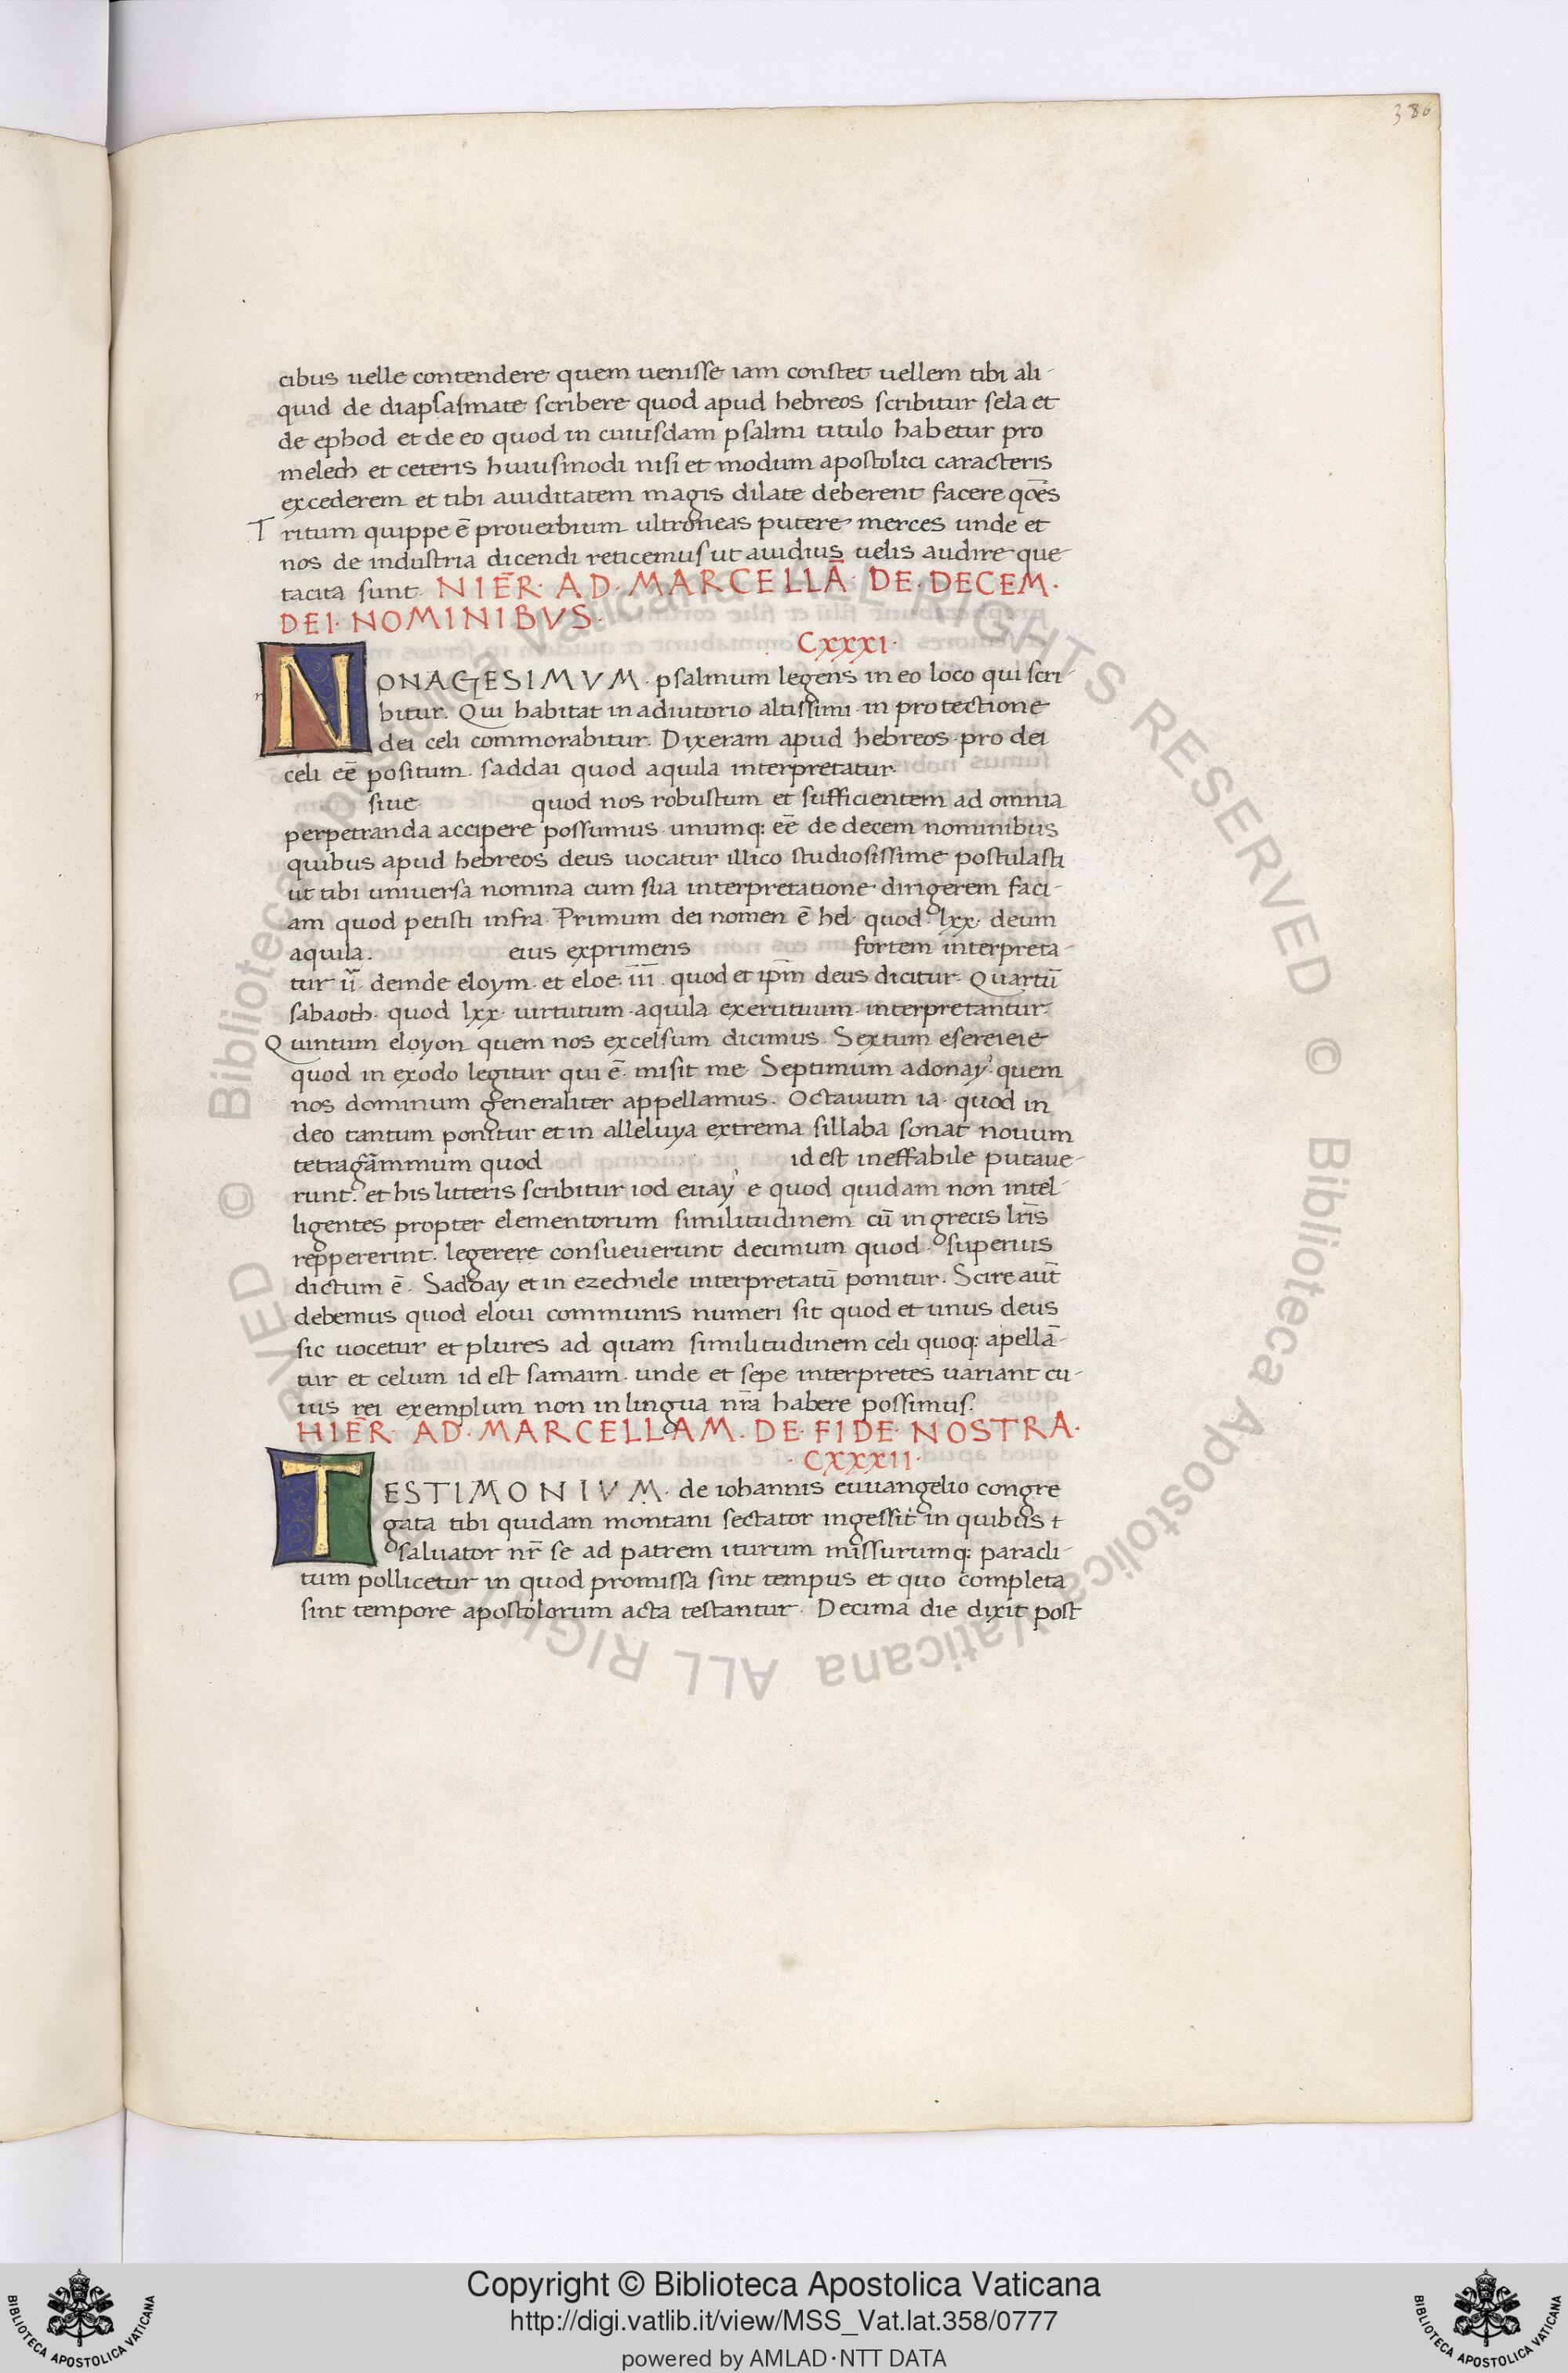 386
cibus uelle contendere quem uenisse iam constet uellem tibi ali-
quid de diapsasmate scribere quod apud hebreos scribitur sela et
de ephod et de eo quod in cuiusdam psalmi titulo habetur pro
melech et ceteris huiusmodi nisi et modum apostolici caracteris
excederem et tibi auiditatem magis dilate deberent facere qōēs
Tritum quippe ē prouerbium ultroneas putere merces unde et
nos de industria dicendi reticemus ut auidius uelis audire que
tacita sunt. NIER̄· AD· MARCELLĀ· DE· DECEM·
DEI· NOMINIBVS·
Cxxxi·
NONAGESIMVM· psalmum legens in eo loco qui scri-
bitur. Qui habitat in adiutorio altissimi· in protectione
dei celi commorabitur. Dixeram apud hebreos· pro dei
celi eē positum· saddai quod aquila interpretatur·
siue quod nos robustum et sufficientem ad omnia
perpetranda accipere possumus· unumq: eē de decem nominibus
quibus apud hebreos deus uocatur illico studiosissime postulasti
ut tibi uniuersa nomina cum sua interpretatione dirigerem faci-
am quod petisti infra· Primum dei nomen ē hel· quod· lxx· deum
aquila· eius exprimens fortem interpreta-
tur ii· deinde eloym· et eloe· iii· quod et ip̄m deus dicitur· Quartū
sabaoth· quod lxx· uirtutum· aquila exertituum· interpretantur·
Quintum eloyon quem nos excelsum dicimus· Sextum esereieie
quod in exodo legitur qui ē· misit me· Septimum adonay· quem
nos dominum generaliter appellamus· Octauum ia· quod in
deo tantum ponitur et in alleluya extrema sillaba sonat nouum
tetragāmmum quod id est ineffabile putaue-
runt· et his litteris scribitur iod euay· e quod quidam non intel-
ligentes propter elementorum similitudinem cū in grecis lr̄is
reppererint· legerere consueuerunt decimum quod· superius
dictum ē· Sadday et in ezechiele interpretatū ponitur· Scire aut̄
debemus quod eloui communis numeri sit quod et unus deus
sic uocetur et plures ad quam similitudinem celi quoq: apellā-
tur et celum id est samaim· unde et sepe interpretes uariant cu-
ius rei exemplum non in lingua nr̄a habere possimus·
HIER̄· AD· MARCELLAM· DE· FIDE· NOSTRA·
·CXXXII·
TESTIMONIVM· de iohannis euuangelio congre
gata tibi quidam montani sectator ingessit in quibus
saluator nr̄ se ad patrem iturum missurumq: paracli-
tum pollicetur in quod promissa sint tempus et quo completa
sint tempore apostolorum acta testantur· Decima die dixit post
© Biblioteca Apostolica Vaticana ALL RIGHTS RESERVED © Biblioteca Apostolica Vaticana ALL RIGHTS RESERVED
BIBLIOTECA APOSTOLICA VATICANA
Copyright © Biblioteca Apostolica Vaticana
http://digi.vatlib.it/view/MSS_Vat.lat.358/0777
powered by AMLAD·NTT DATA
BIBLIOTECA APOSTOLICA VATICANA